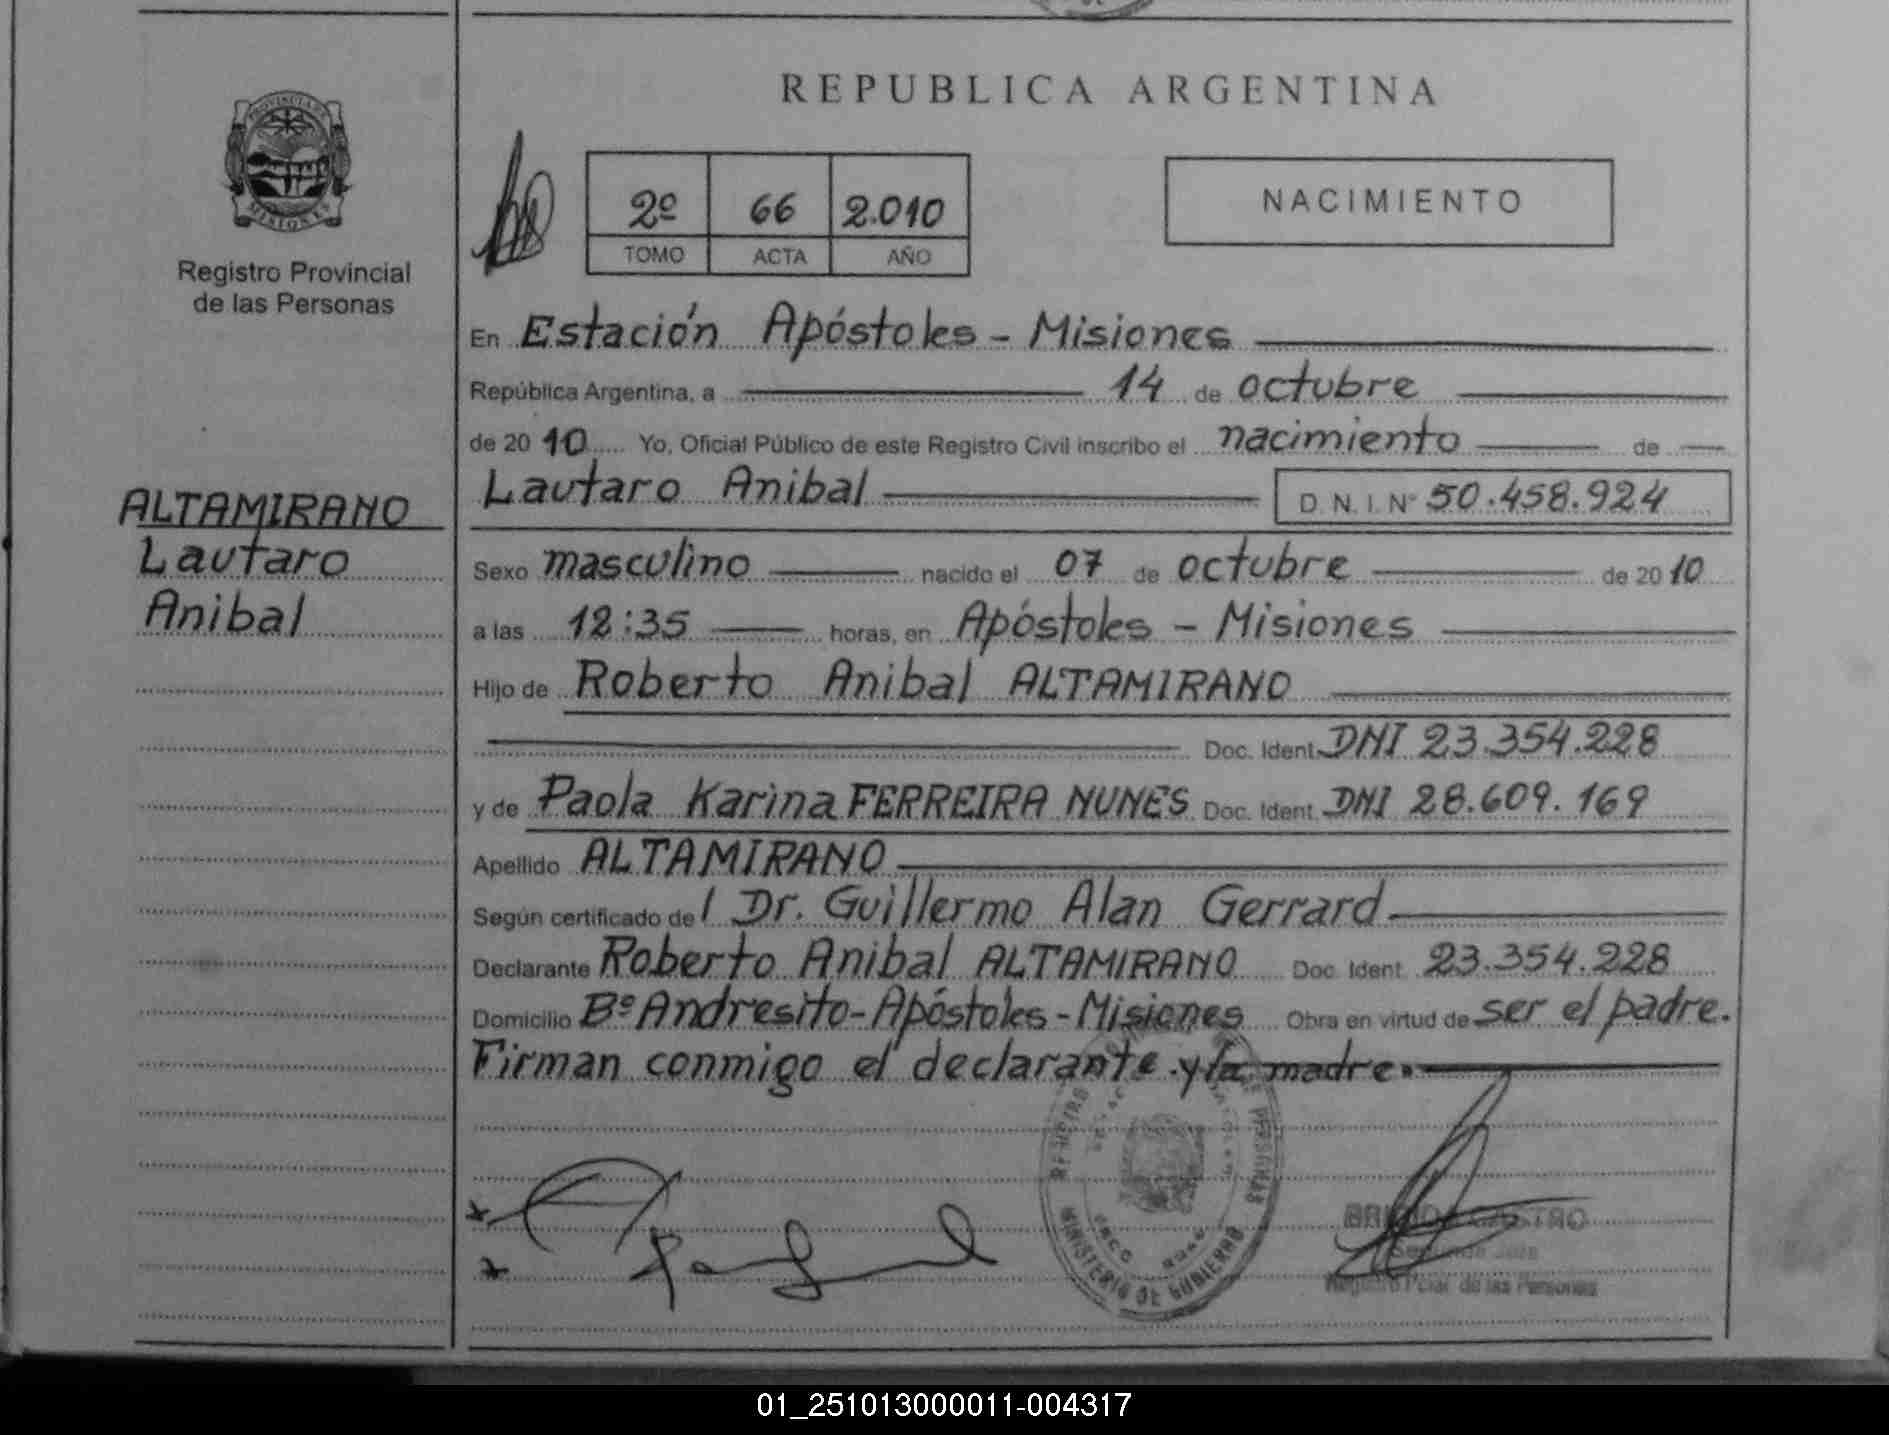 REPUBLICA ARGENTINA
PROVINCIA DE
MISIONES
Registro Provincial
de las Personas
2º 66 2.010
TOMO ACTA AÑO
NACIMIENTO
En Estación Apóstoles - Misiones
República Argentina, a 14 de octubre
de 2010 Yo, Oficial Público de este Registro Civil inscribo el nacimiento de
Lautaro Anibal D. N. I. Nº 50.458.924
ALTAMIRANO
Lautaro
Anibal
Sexo masculino nacido el 07 de octubre de 2010
a las 12:35 horas, en Apóstoles - Misiones
Hijo de Roberto Anibal ALTAMIRANO
Doc. Ident. DNI 23.354.228
y de Paola Karina FERREIRA NUNES Doc. Ident. DNI 28.609.169
Apellido ALTAMIRANO
Según certificado de / Dr. Guillermo Alan Gerrard
Declarante Roberto Anibal ALTAMIRANO Doc. Ident. 23.354.228
Domicilio Bº Andresito - Apóstoles - Misiones Obra en virtud de ser el padre.
Firman conmigo el declarante y la madre.
MINISTERIO DE GOBIERNO
CASTRO
de las Personas
01_251013000011-004317